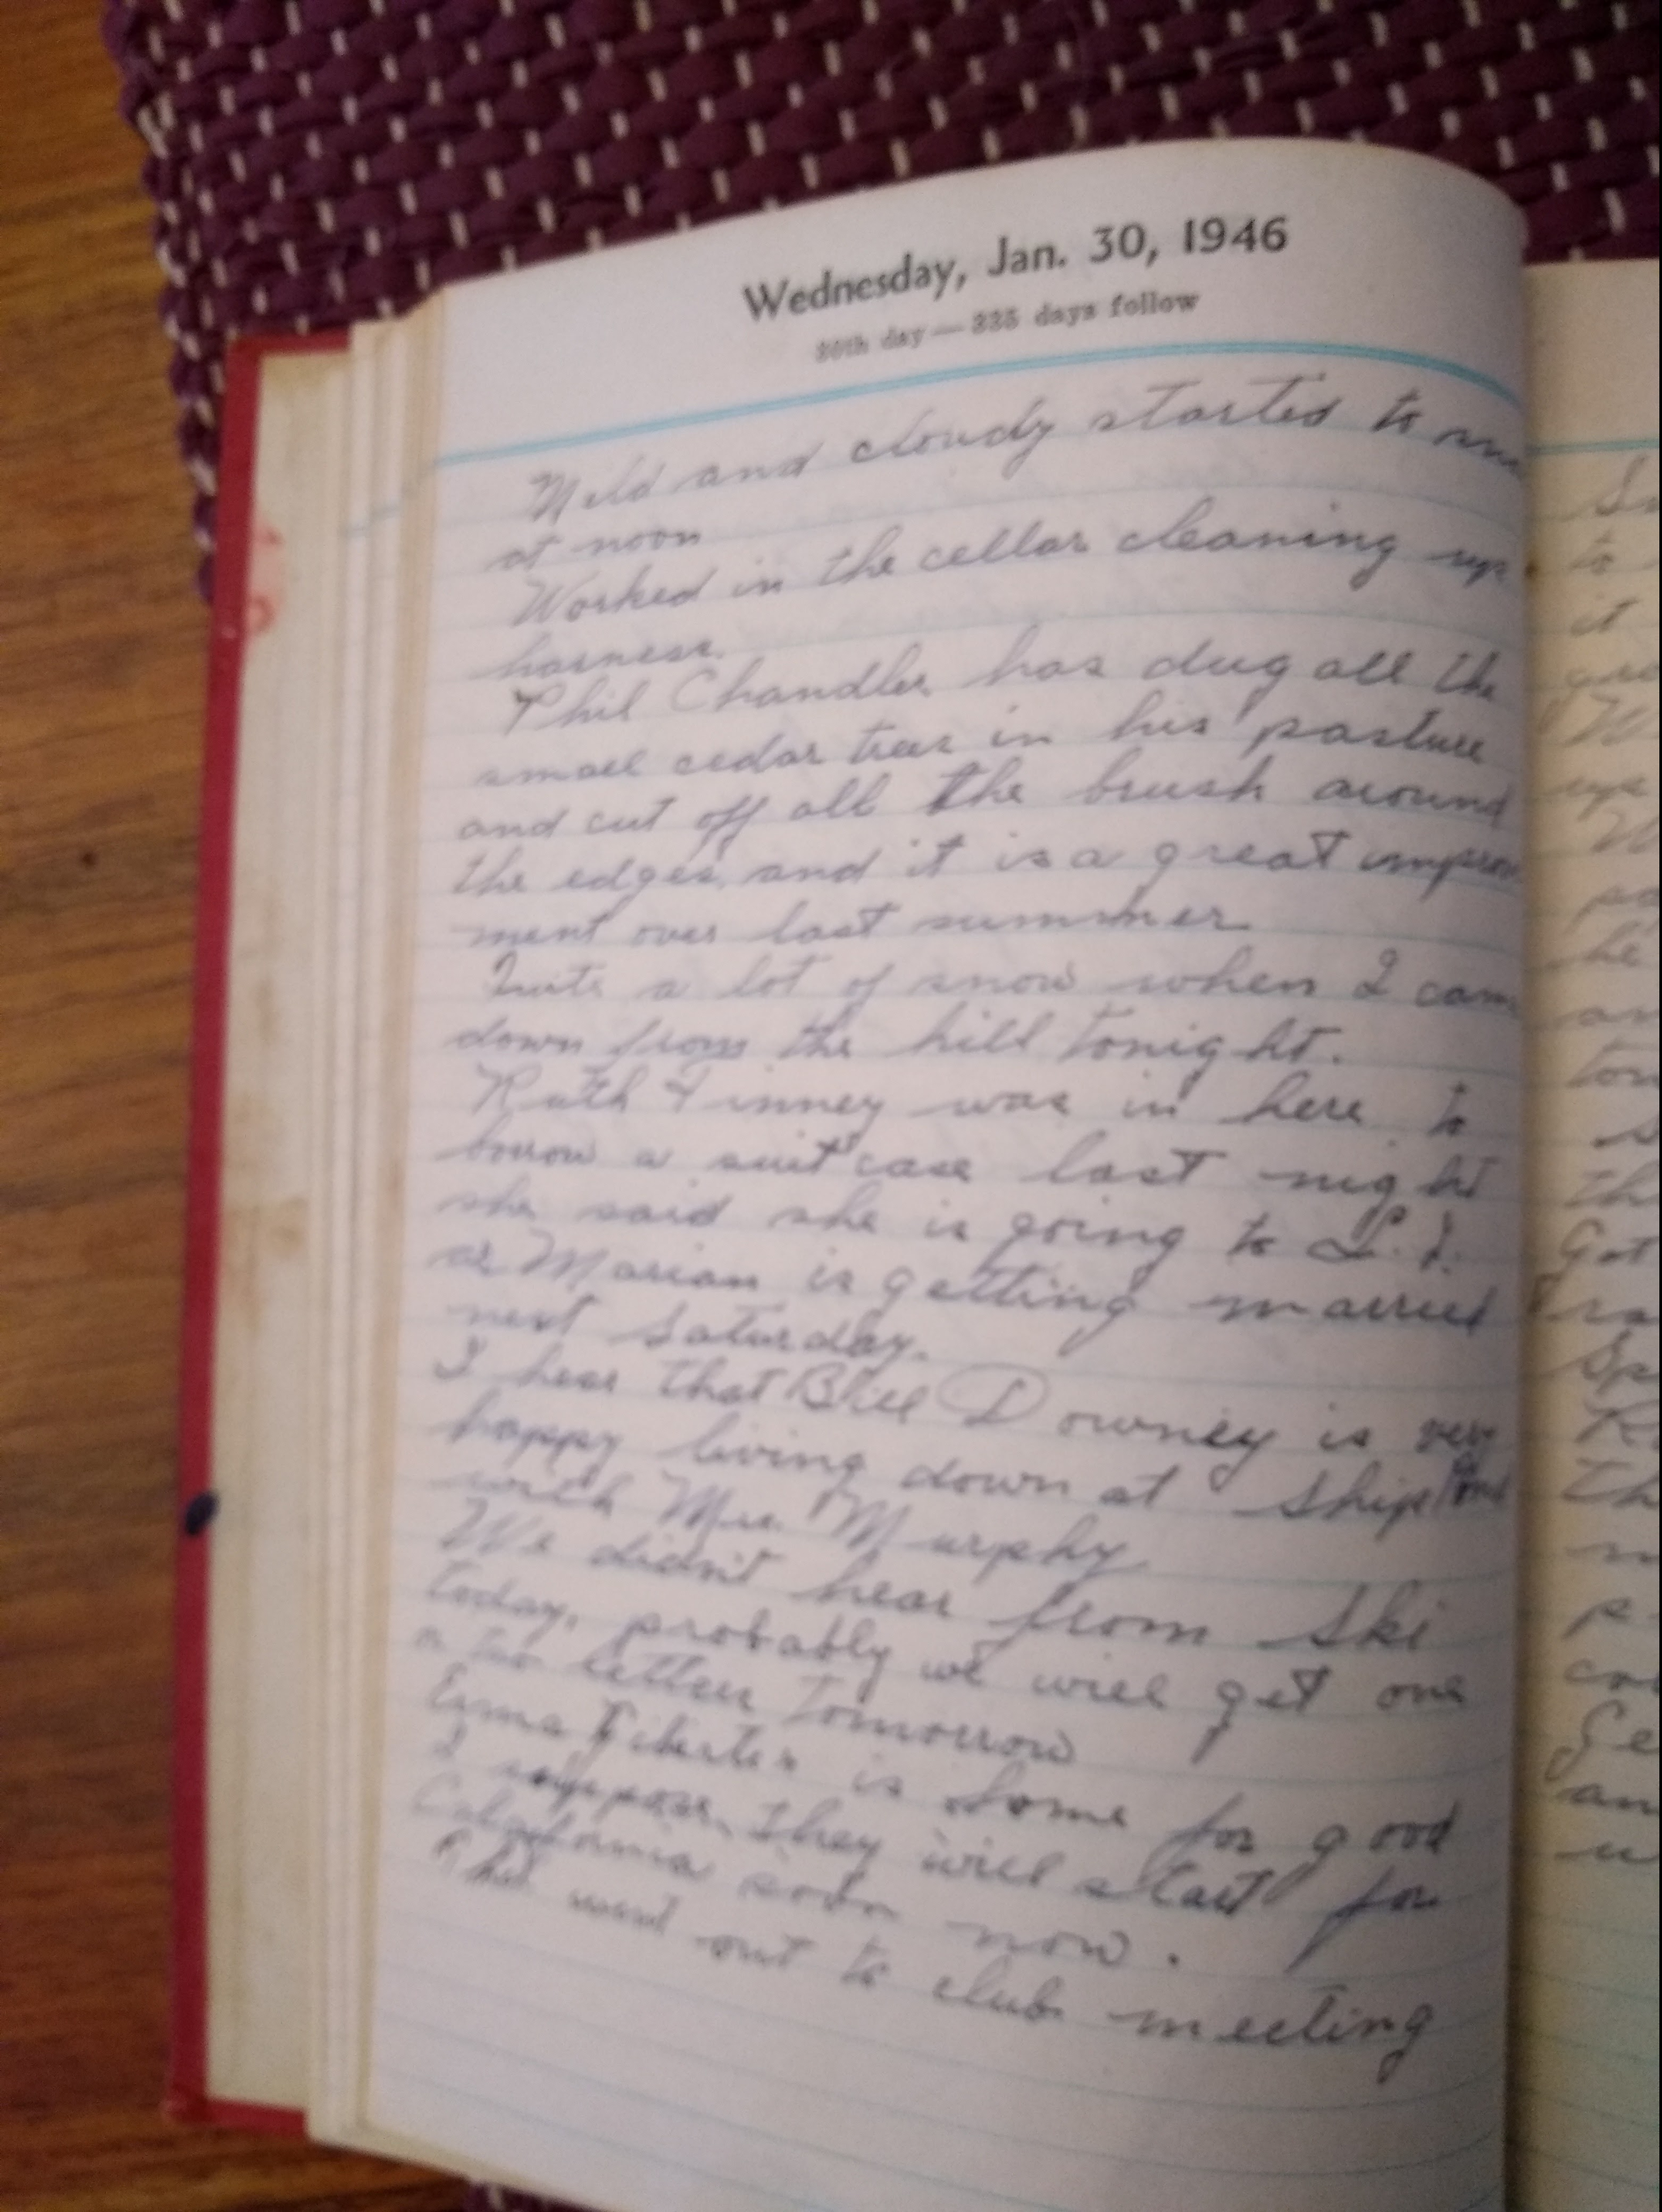 Wednesday, Jan. 30, 1946
30th day — 335 days follow
Mild and cloudy started to
at noon
Worked in the cellar cleaning up
harness.
Phil Chandler has dug all the
small cedar trees in his pasture
and cut off all the brush around
the edges and it is a great improve
ment over last summer
Quite a lot of snow when I came
down from the hill tonight.
Ruth Finney was in here to
borrow a suit case last night
she said she is going to L. I.
as Marian is getting married
next Saturday.
I hear that Bill Downey is very
happy living down at Ship Pond
with Mrs. Murphy
We didn't hear from Ski
today, probably we will get one
or two letters tomorrow
is home for good
I suppose they will start for
California soon now.
Phil went out to club meeting